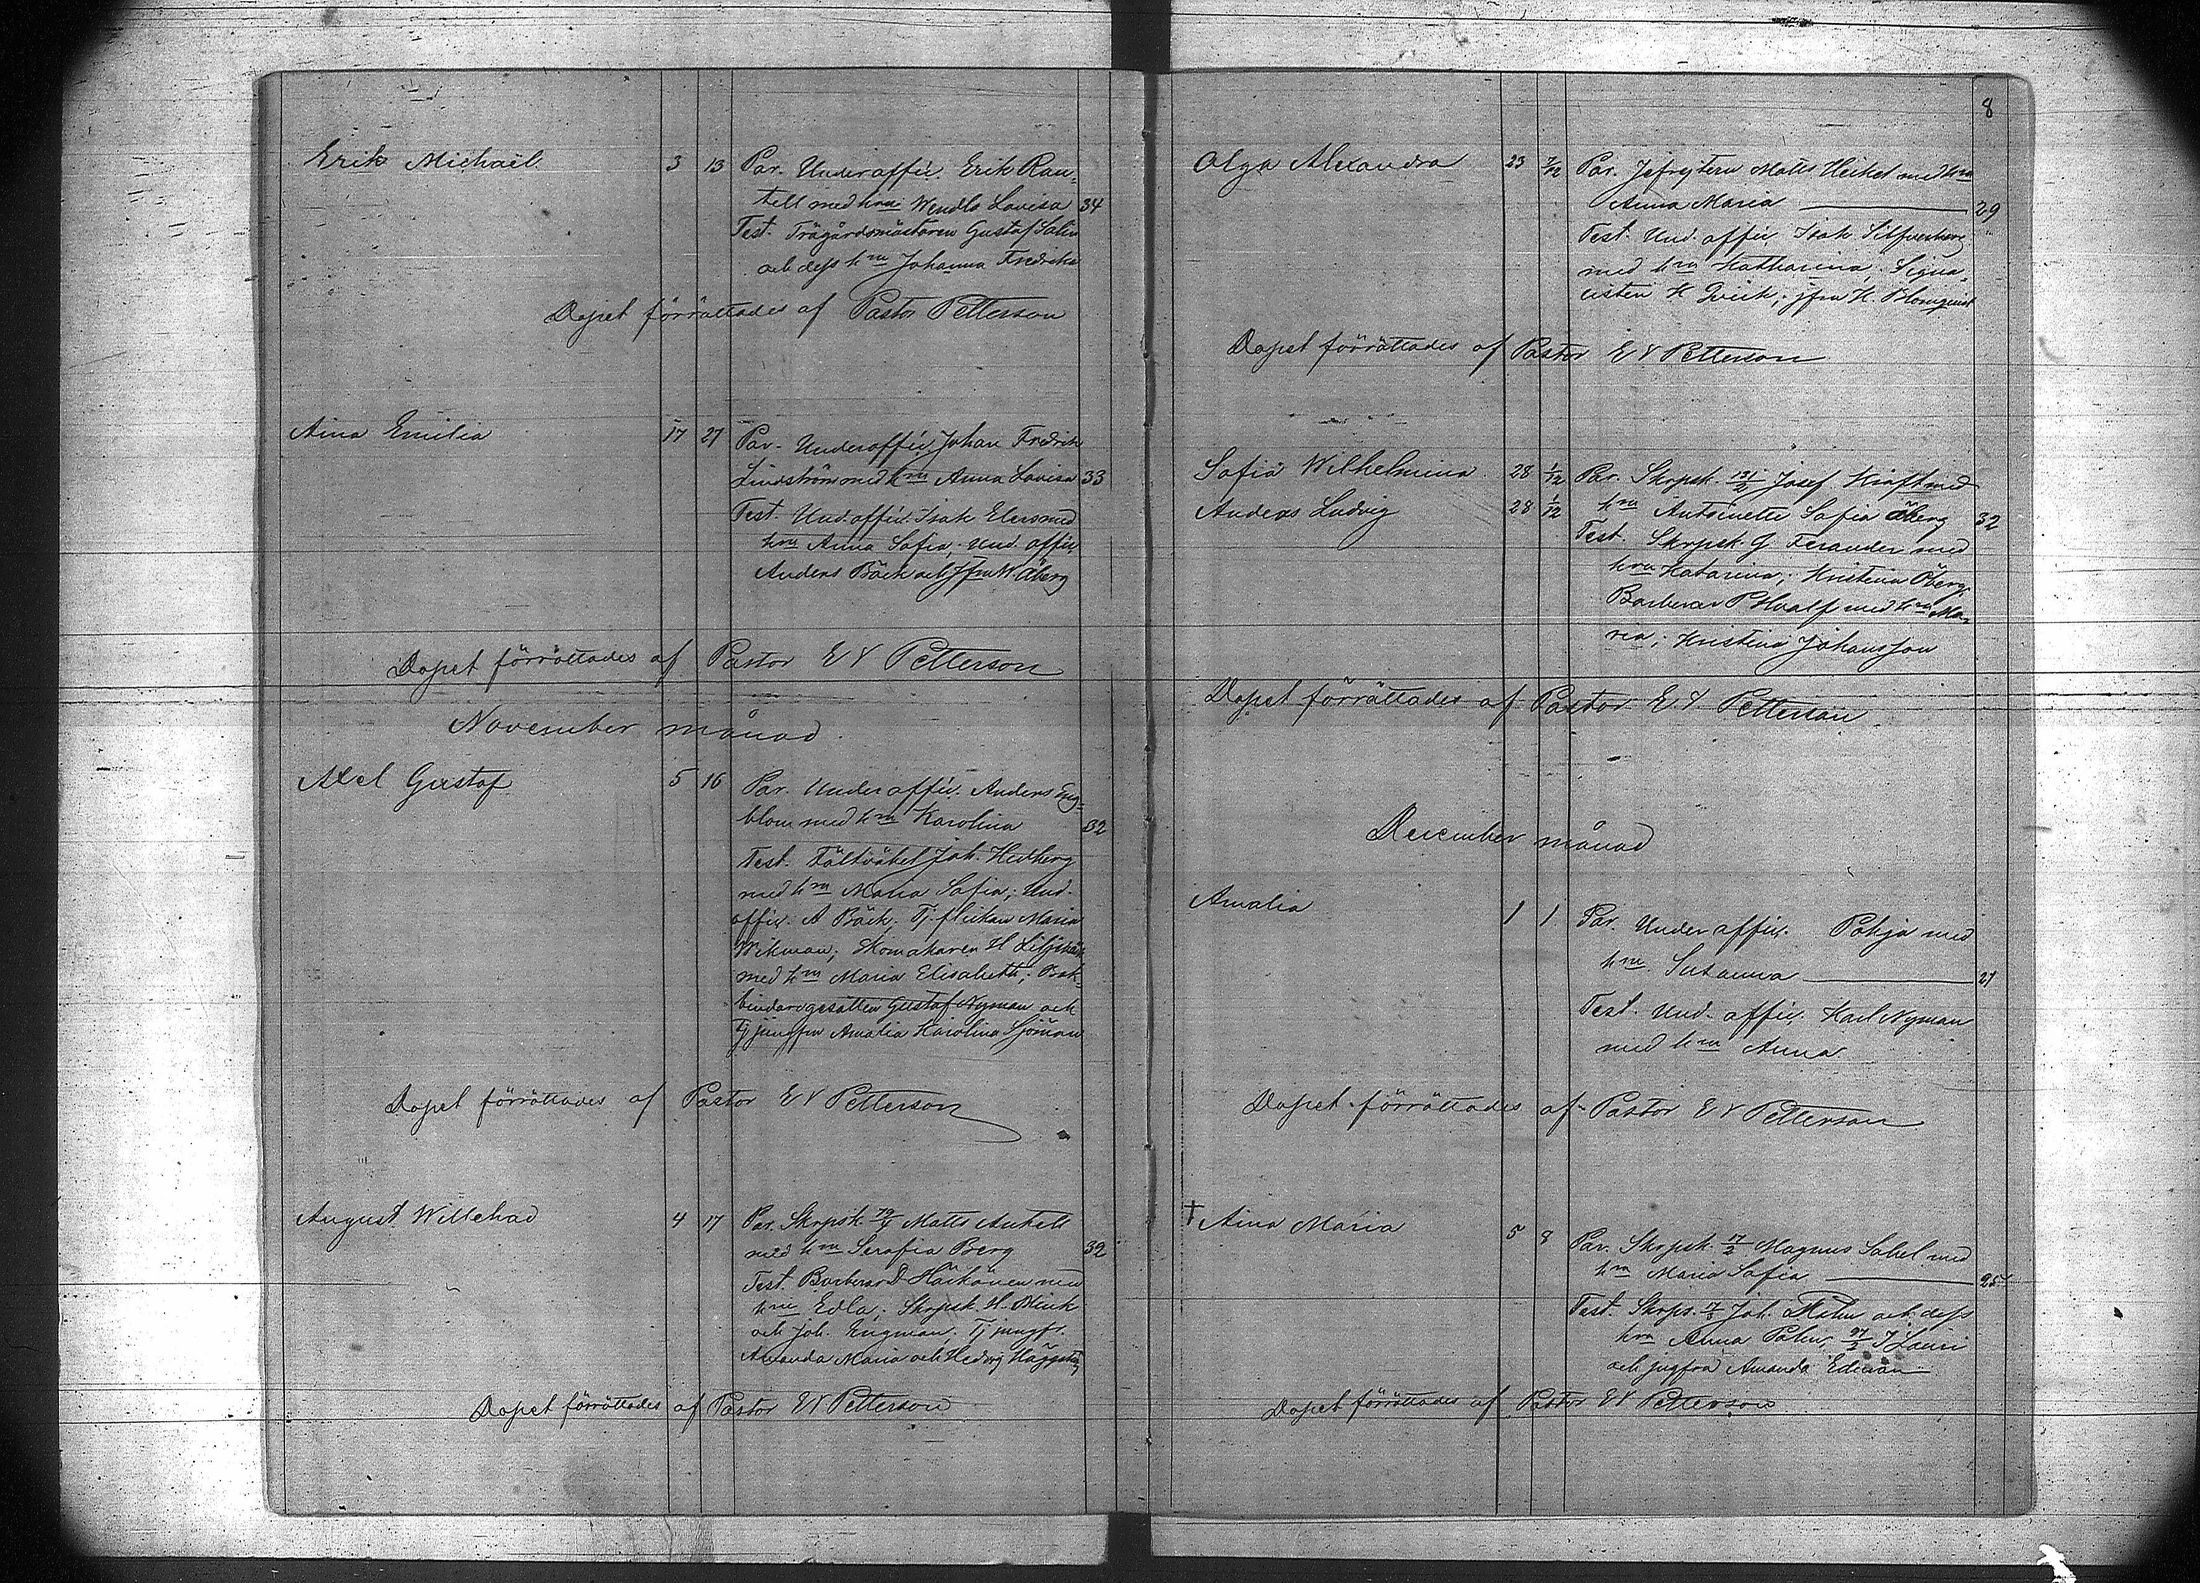 Erik Michael 3 13 Par. Underoffic. Erik Ran-
tell med hru Wendla Lovisa 34
Test. Trägårdsmästaren Gustaf Salin
och dess hru Johanna Fredrika
Dopet förrättades af Pastor Petterson
Aina Emilia 17 27 Par. Underoffic. Johan Fredrik
Lindström med hru Anna Lovisa 33
Test. Und.offic. Isak Elers med
hru Anna Sofia, Und. offic
Anders Bäck och Jfru W Åberg
Dopet förrättades af Pastor E V Petterson
November månad
Axel Gustaf 5 16 Par. Underoffic. Anders Eng-
blom med hru Karolina 32
Test. Fältväbel Joh. Hedberg
med hru Maria Sofia; Und.
offic. A Bäck, Tj. flickan Maria
Wikman; Skomakaren H
med hru Maria Elisabeth; Bok-
bindaregesällen Gustaf Nyman och
Tj jungfru Amalia Karolina Sjöman
Dopet förrättades af Pastor E V Petterson
August Willehad 4 17 Par. Skrpsk. Matts Ankell
med hru Serafia Berg 32
Test. Barberar D Härkönen med
hru Edla; Skrpsk. H.
och Joh. Engman, Tj jungfr.
Amanda Maria och Hedvig
Dopet förrättades af Pastor E V Petterson
8
Olga Alexandra 23 7/12 Par. Jefrejtern Matts Heikel med hru
Anna Maria 29
Test. Und. offic Isak Silfverberg
med hru Katharina. Signa-
listen H Qvick; jfru H. Blomqvist
Dopet förrättades af Pastor E V Petterson
Sofia Wilhelmina 28 1/12 Par. Skrpsk. Josef Kraft med
Anders Ludvig 28 1/12 hru Antoinetta Sofia Öberg 32
Test. Skrpsk G Ferander med
hru Katarina; Kristina Öberg,
Barberar P Hvalf med hru Ma-
ria; Kristina Johansson
Dopet förrättades af Pastor E V Petterson
December månad
Amalia 1 1 Par. Underoffic. Pohja med
hru Susanna 21
Test. Und. offic. Karl Nyman
med hru Anna
Dopet förrättades af Pastor E V Petterson
† Aina Maria 5 8 Par. Skrpsk. 17/2 Magnus Sabel med
hru Maria Sofia 25
Test. Skrps. Joh. och dess
hru Anna
och jugfru Amanda Edman
Dopet förrättades af Pastor E V Petterson